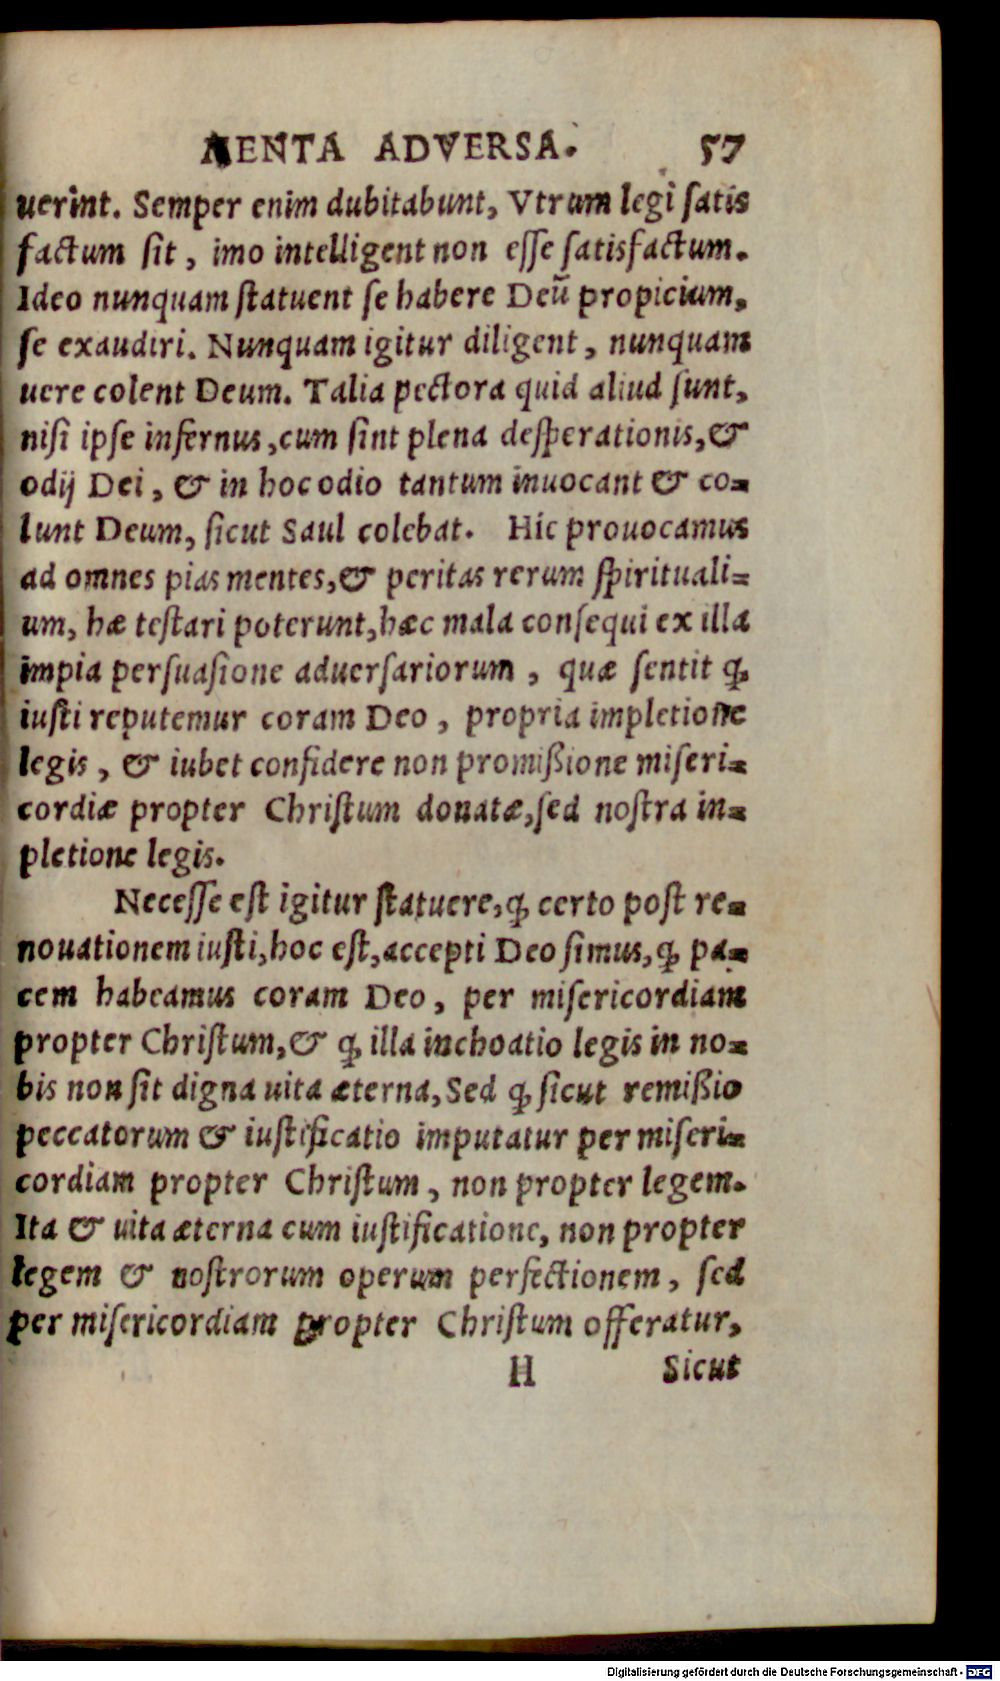 MENTA ADVERSA. 57
uerint. Semper enim dubitabunt, Vtrum legi ſatis
factum ſit, imo intelligent non eſſe ſatisfactum.
Ideo nunquam ſtatuent ſe habere Deũ propicium,
ſe exaudiri. Nunquam igitur diligent, nunquam
uere colent Deum. Talia pectora quid aliud ſunt,
niſi ipſe infernus, cum ſint plena deſperationis, &
odij Dei, & in hoc odio tantum inuocant & co=
lunt Deum, ſicut Saul colebat. Hic prouocamus
ad omnes pias mentes, & peritas rerum ſpirituali=
um, hæ teſtari poterunt, hæc mala conſequi ex illa
impia perſuaſione aduerſariorum, quæ ſentit ꝙ
iuſti reputemur coram Deo, propria impletione
legis, & iubet confidere non promißione miſeri=
cordiæ propter Chriſtum donatæ, ſed noſtra in=
pletione legis.
Neceſſe eſt igitur ſtatuere, ꝙ certo poſt re=
nouationem iuſti, hoc eſt, accepti Deo ſimus, ꝙ pa=
cem habeamus coram Deo, per miſericordiam
propter Chriſtum, & ꝙ illa inchoatio legis in no=
bis non ſit digna uita æterna, Sed ꝙ ſicut remißio
peccatorum & iuſtificatio imputatur per miſeri=
cordiam propter Chriſtum, non propter legem.
Ita & uita æterna cum iuſtificatione, non propter
legem & noſtrorum operum perfectionem, ſed
per miſericordiam propter Chriſtum offeratur,
H Sicut
Digitalisierung gefördert durch die Deutsche Forschungsgemeinschaft - DFG